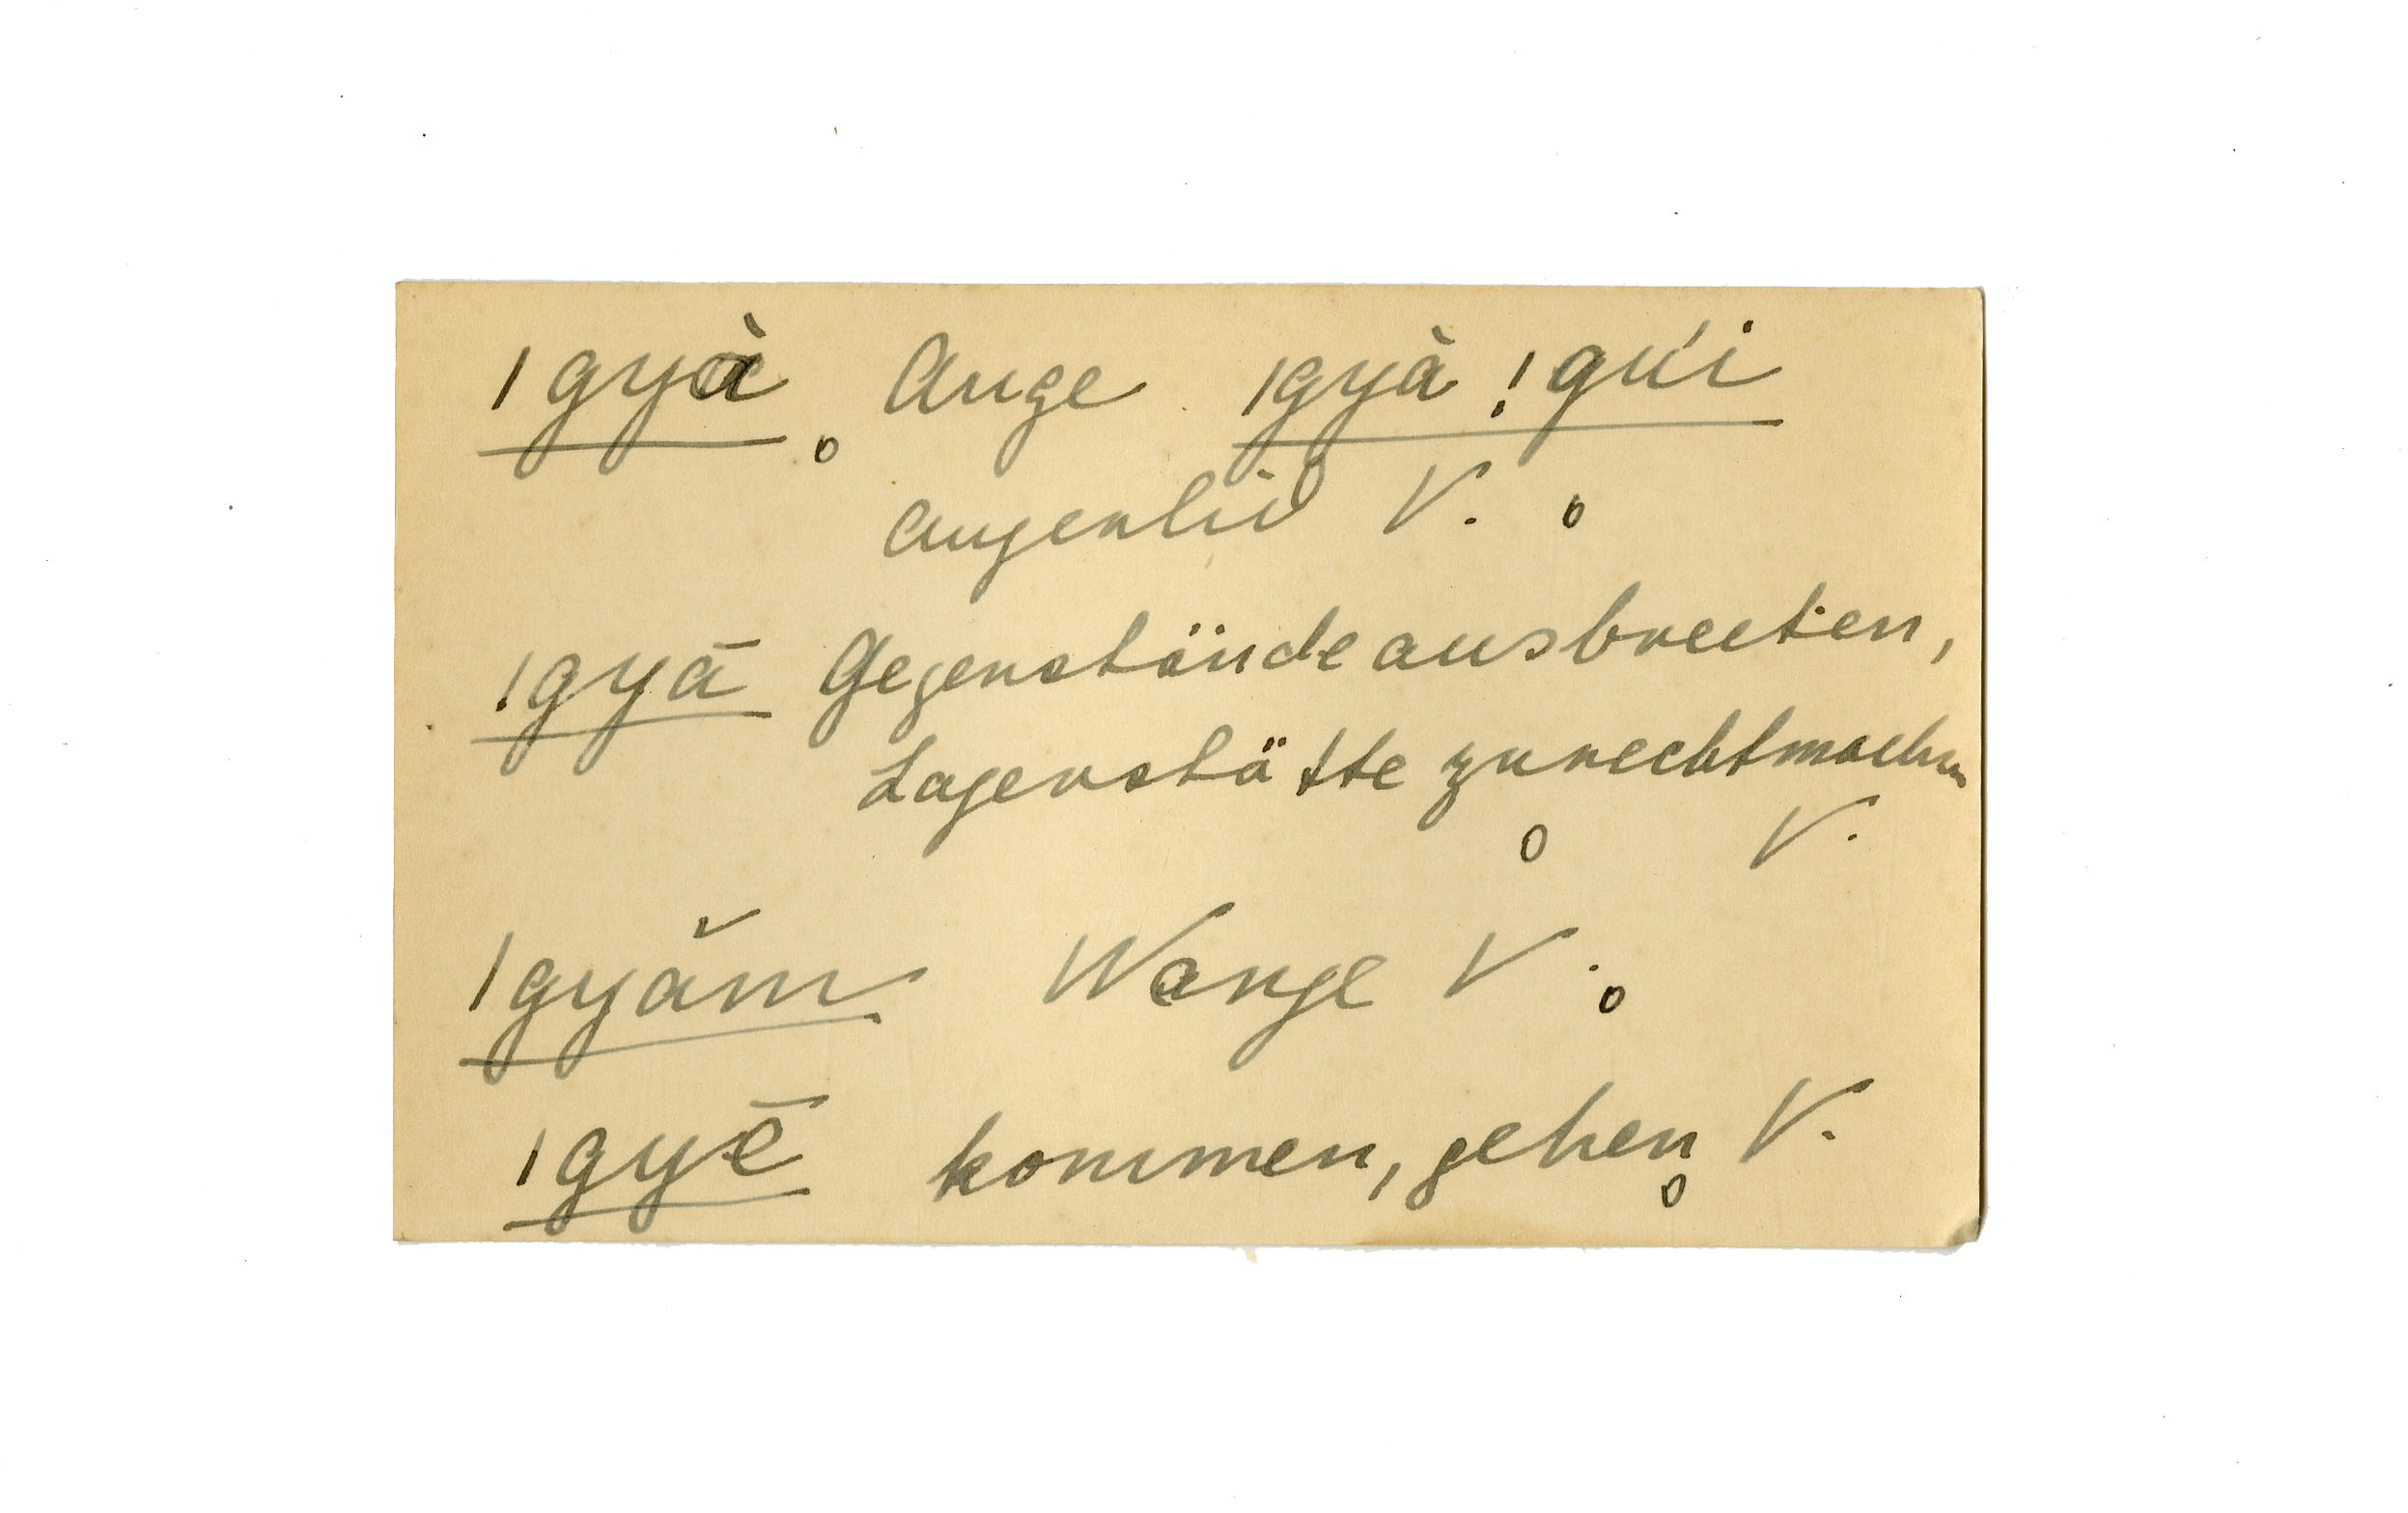 ǀgyà Auge ǀgyà !gúi
Augenlid V.
!gyā Gegenstände ausbreiten,
Lagerstätte zurechtmachen
V.
ǀgyăm Wange V.
ǀgyē kommen, gehen V.